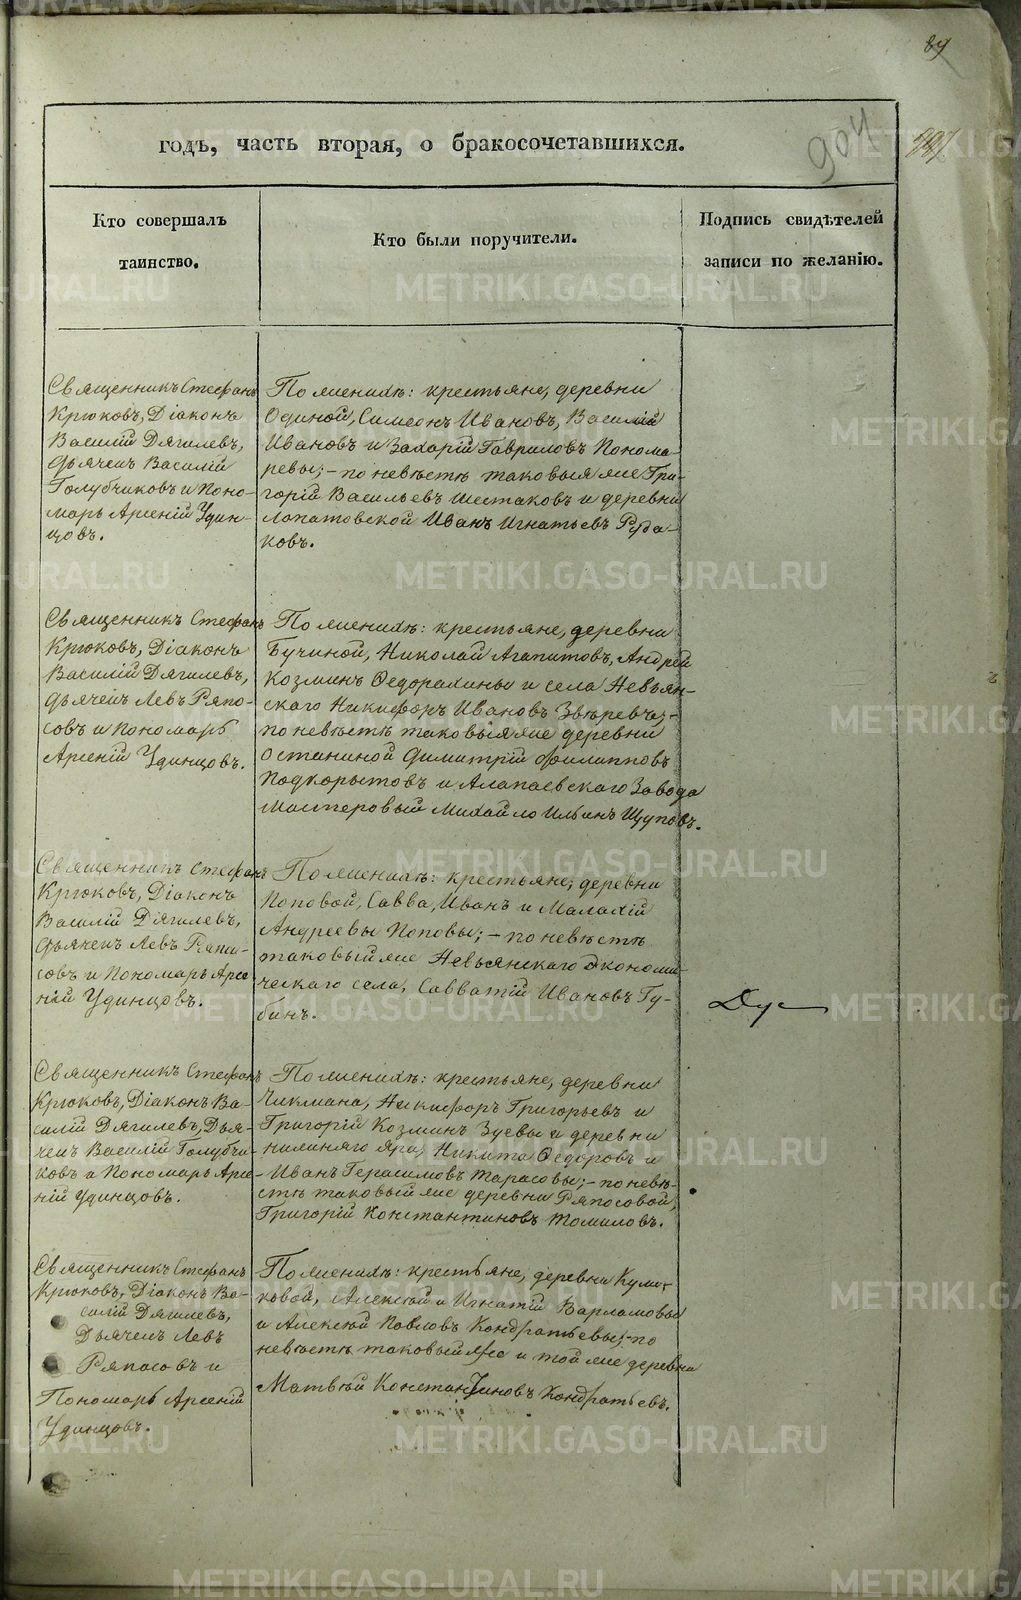 89
годъ, часть вторая, о бракосочетавшихся.
904
Кто совершалъ
таинство.
Кто были поручители.
Подпись свидѣтелей
записи по желанію.
Священникъ Стефанъ
Крюковъ, Діаконъ
Василій Дягилевъ,
Дьячекъ Василій
Голубчиковъ и Поно-
марь Арсеній Удин-
цовъ.
По женихѣ: крестьяне, деревни
Одиной, Симеонъ Ивановъ, Василій
Ивановъ и Захарій Гавриловъ Понома-
ревы; - по невѣстѣ таковыя же Гри-
горій Васильевъ Шестаковъ и деревни
Лопатовской Иванъ Игнатьевъ Руда-
ковъ.
Священникъ Стефанъ
Крюковъ, Діаконъ
Василій Дягилевъ,
Дьячекъ Левъ Ряпо-
совъ и Пономарь
Арсеній Удинцовъ.
По женихѣ: крестьяне, деревни
Бучиной, Николай Агапитовъ, Андрей
Козминъ Ѳедорахины и села Невьян-
скаго Никифоръ Ивановъ Звѣревъ; -
по невѣстѣ таковыя же деревни
Останиной Димитрій Филипповъ
Подкорытовъ и Алапаевскаго Завода
Мастеровый Михайло Ильинъ Щуповъ.
Священникъ Стефанъ
Крюковъ, Діаконъ
Василій Дягилевъ,
Дьячекъ Левъ Ряпа-
совъ и Пономарь Арсе-
ній Удинцовъ.
По женихѣ: крестьяне, деревни
Поповой, Савва, Иванъ и Малахій
Андреевы Поповы; - по невѣстѣ
таковый же Невьянскаго Экономи-
ческаго села, Савватій Ивановъ Гу-
бинъ.
Священникъ Стефанъ
Крюковъ, Діаконъ Ва-
силій Дягилевъ, Дья-
чекъ Василій Голубчи-
ковъ и Пономарь Арсе-
ній Удинцовъ.
По женихѣ: крестьяне, деревни
Чикмана, Никифоръ Григорьевъ и
Григорій Козминъ Зуевы и деревни
нижняго Яра, Никита Ѳедоровъ и
Иванъ Герасимовъ Тарасовы; - по невѣ-
стѣ таковый же деревни Ряпосовой,
Григорій Константиновъ Томиловъ.
Священникъ Стефанъ
Крюковъ, Діаконъ Ва-
силій Дягилевъ,
Дьячекъ Левъ
Ряпасовъ и
Пономарь Арсеній
Удинцовъ.
По женихѣ: крестьяне, деревни Кули-
ковой, Алексѣй и Игнатій Варламовы
и Алексѣй Павловъ Кондратьевы; - по
невѣстѣ таковый же и той же деревни
Матвѣй Константиновъ Кондратьевъ.